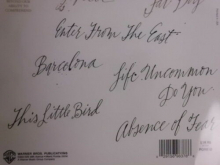 Enter From The East
Barcelona
Life Uncommon
Do You
This Little Bird
Absence of Fear
WARNER BROS. PUBLICATIONS